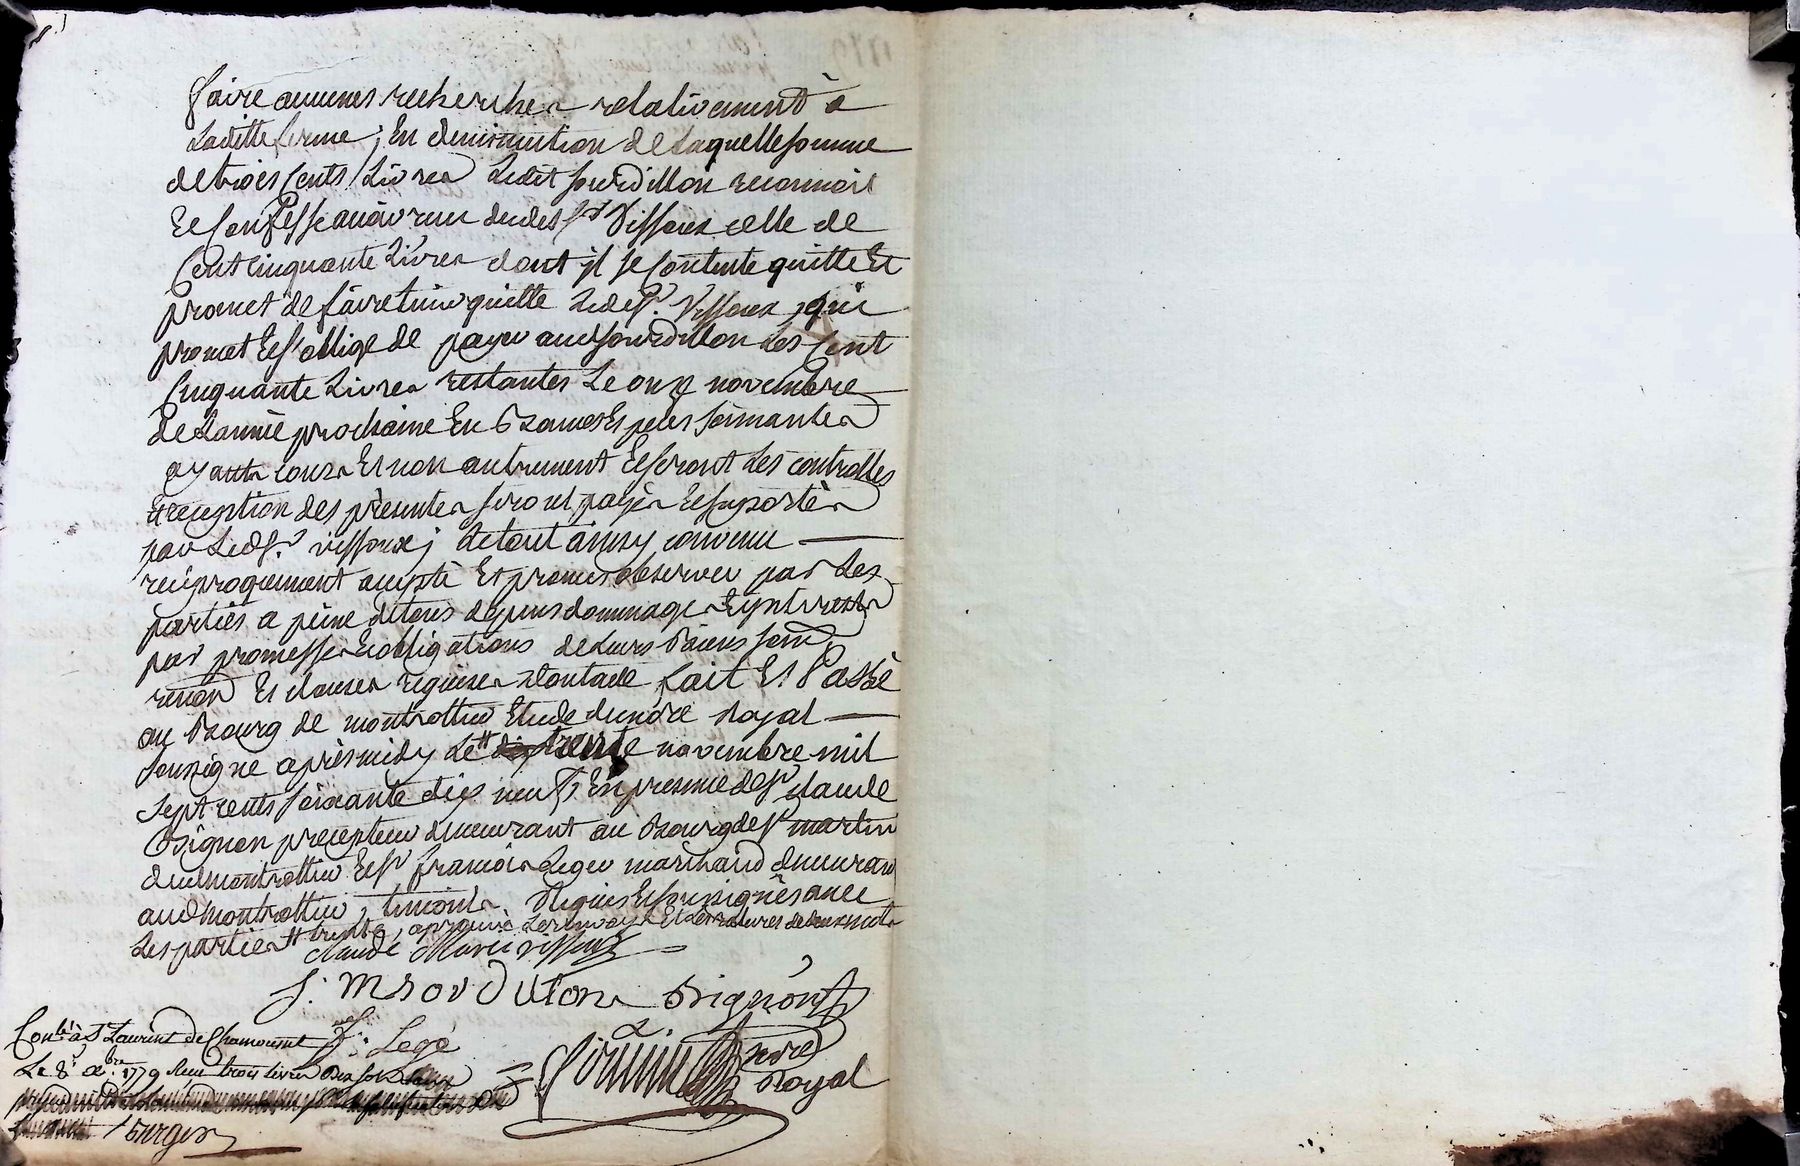 faire aucunes recherches relativement à
Laditte ferme ; En diminution de Laquelle somme
de trois Cents Livres Ledit sourdillon reconnoit
Et Confesse avoir reçu dudit Sr Vissoux celle de
Cent Cinquante Livres dont il se Contente quitte Et
promet de faire tenir quitte Ledt Sr. Vissoux, qui
promet Et s'oblige de payer audt sourdillon Les Cent
Cinquante Livres restantes Le onze novembre
de L'année prochaine En Bonnes Espèces sonnantes
ayants cours Et non autrement Et seront Les controlles
Et reception des présentes seront payés Et suportés
par Ledt Sr. vissoux ; Le tout ainsy convenu
reciproquement accepté Et promis observer par Les
parties a peine de tous dépens dommages Et interests
par promesses Et obligations de Leurs Biens soum
renon Et clauses requises dont acte fait Et Passé
au Bourg de montrottier Etude du nore Royal
soussigné après midy Le # trente novembre mil
sept cents soixante dix neuf, En presence de Sr claude
Brignon precepteur demeurant au Bourg de St martin
dudt montrottier Et Sr francois Leger marchand demeurant
audt montrottier, temoins Requis Et soussignés avec
Les parties # trente, aprouvé Le renvoy Et Les ratures de deux mots
Claude Marie vissoux
J. M Sourdillon Brignon
J. Legé
nore Royal
Conlé à St Laurent de Chamousset
Le 8 Xbre 1779 Reçu trois livres dix sols